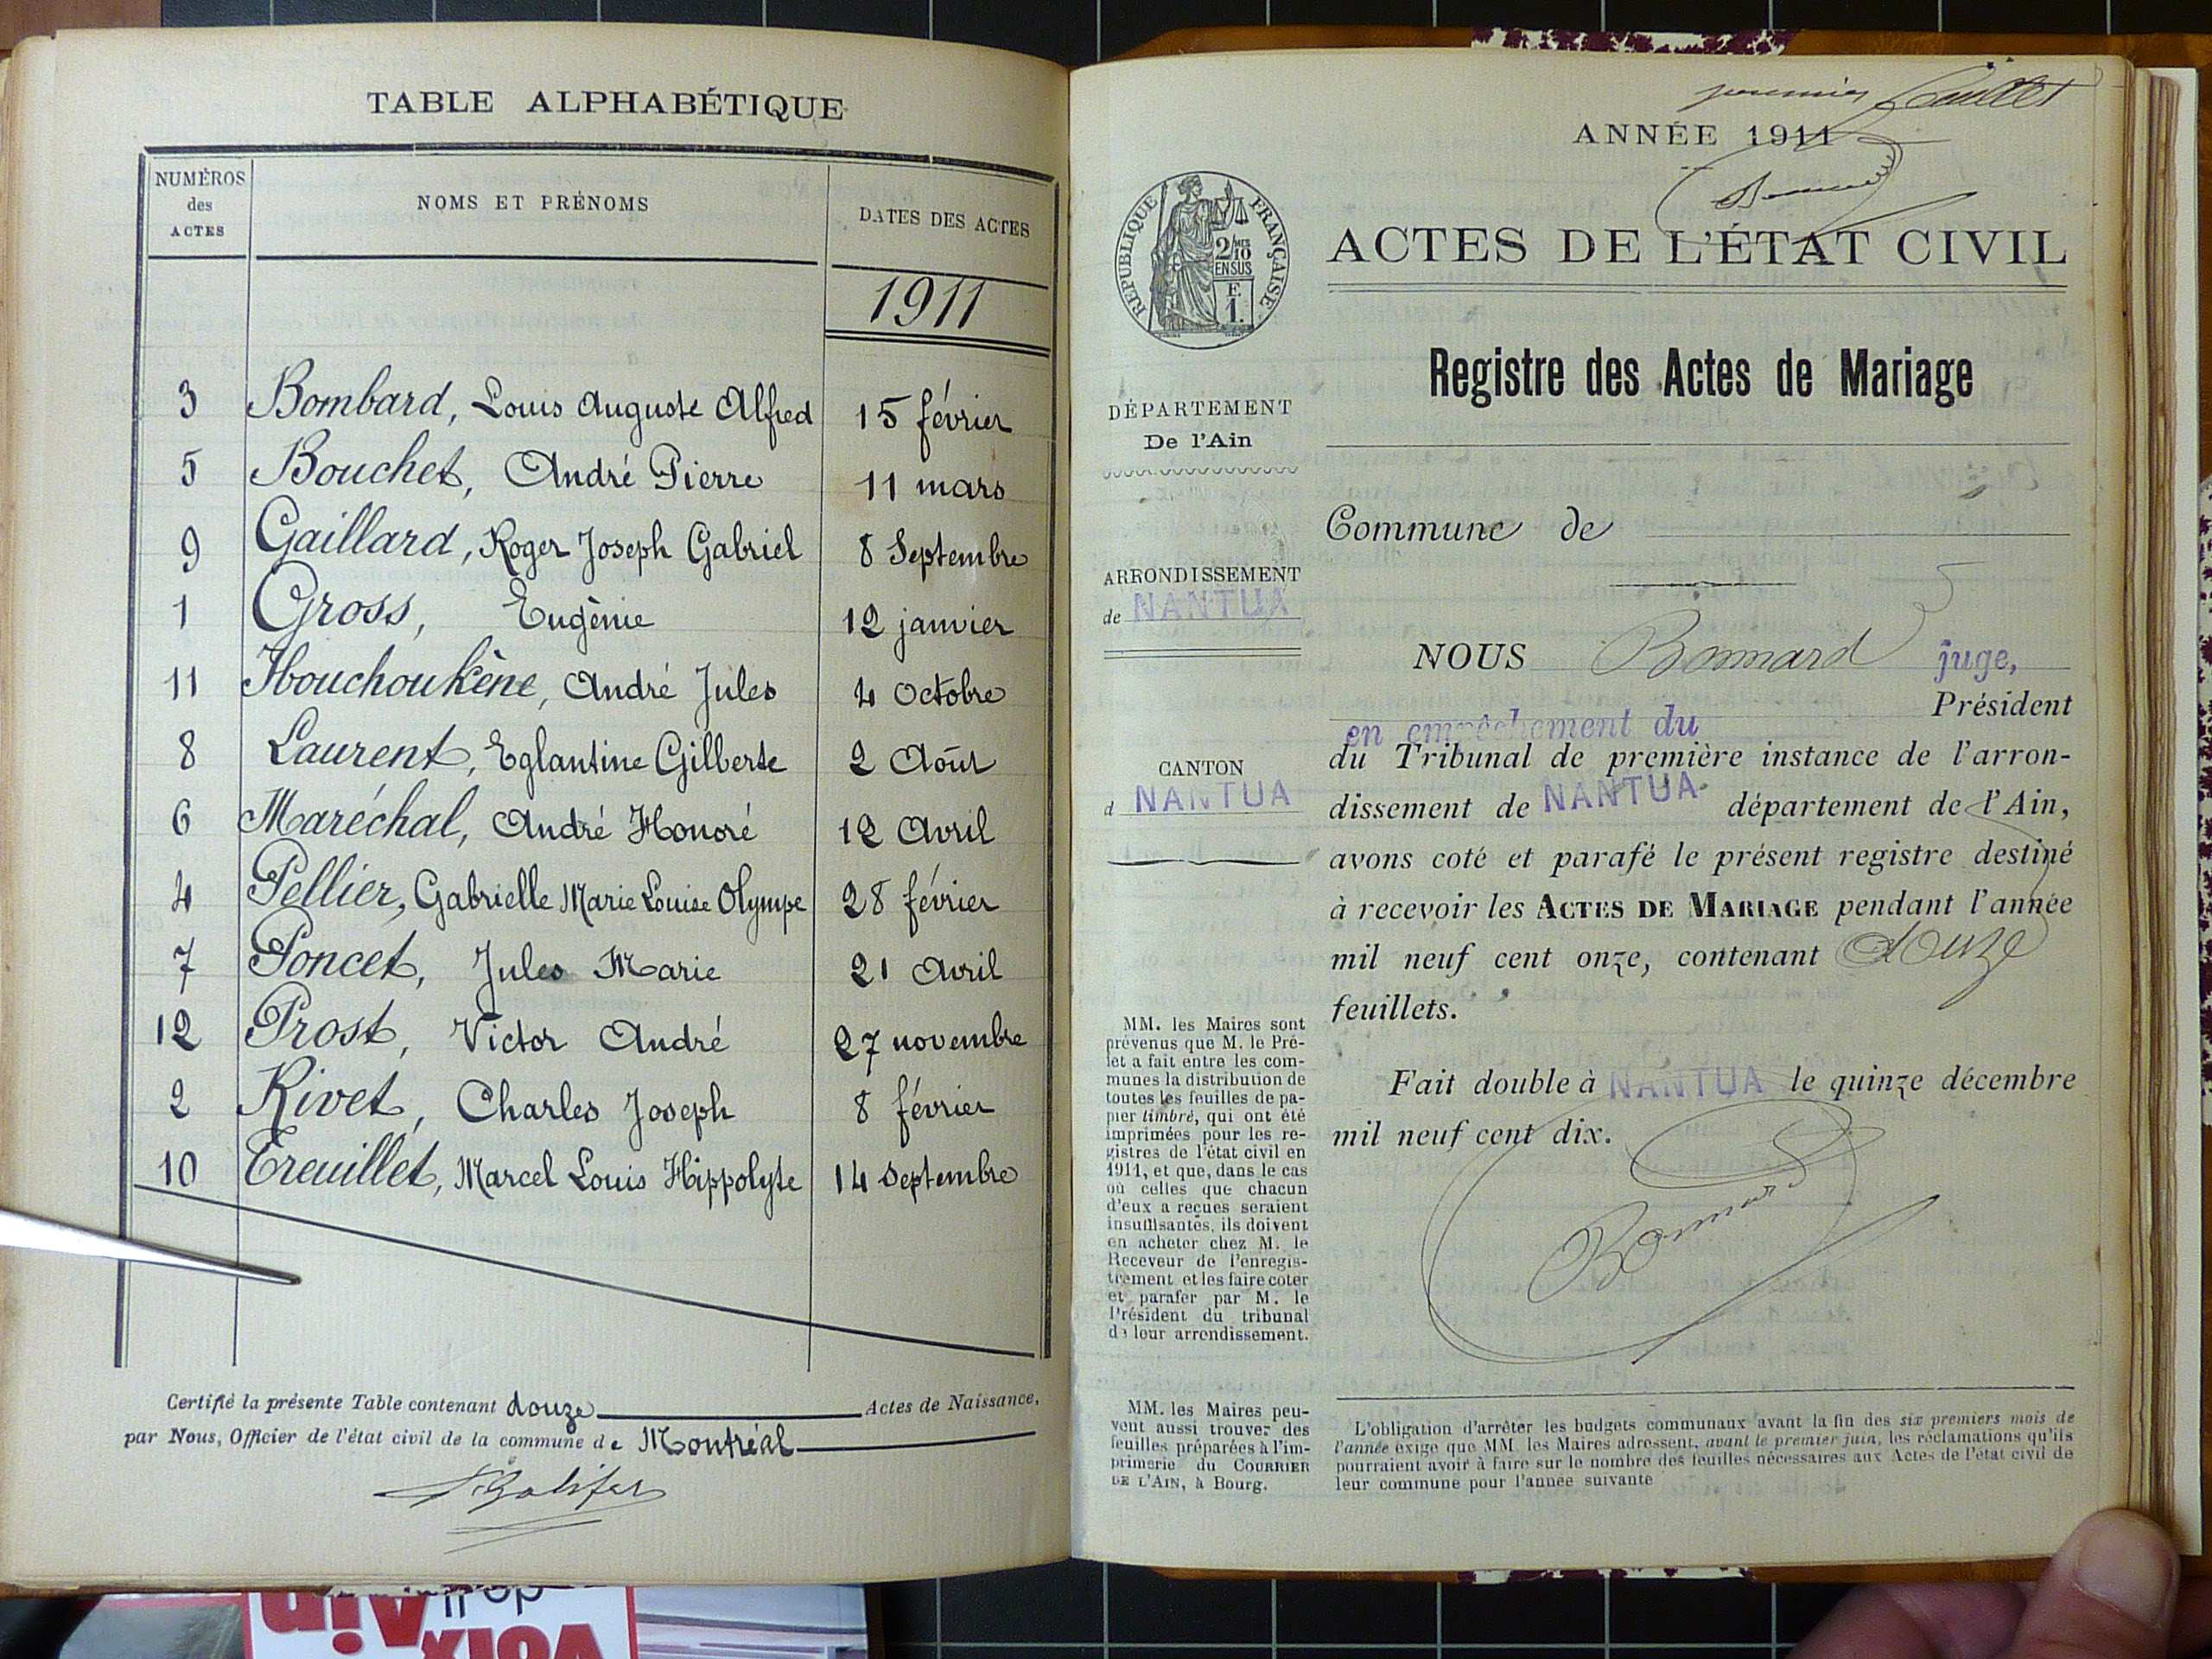 TABLE ALPHABÉTIQUE
NUMÉROS des ACTES
NOMS ET PRÉNOMS
DATES DES ACTES
1911
3 Bombard, Louis Auguste Alfred 15 février
5 Bouchet, André Pierre 11 mars
9 Gaillard, Roger Joseph Gabriel 8 Septembre
1 Gross, Eugènie 12 janvier
11 Hbouchoukène, André Jules 4 Octobre
8 Laurent, Eglantine Gilberte 2 Août
6 Maréchal, André Honoré 12 Avril
4 Pellier, Gabrielle Marie Louise Olympe 28 février
7 Poncet, Jules Marie 21 Avril
12 Prost, Victor André 27 novembre
2 Rivet, Charles Joseph 8 février
10 Treuillet, Marcel Louis Hippolyte 14 Septembre
Certifié la présente Table contenant douze Actes de Naissance,
par Nous, Officier de l'état civil de la commune de Montréal
premier feuillet
ANNÉE 1911
RÉPUBLIQUE FRANÇAISE
2/10
EN SUS
F.
1.
ACTES DE L'ÉTAT CIVIL
Registre des Actes de Mariage
DÉPARTEMENT
De l'Ain
ARRONDISSEMENT
de NANTUA
CANTON
d NANTUA
MM. les Maires sont
prévenus que M. le Pré-
fet a fait entre les com-
munes la distribution de
toutes les feuilles de pa-
pier timbré, qui ont été
imprimées pour les re-
gistres de l'état civil en
1911, et que, dans le cas
où celles que chacun
d'eux a reçues seraient
insuffisantes, ils doivent
en acheter chez M. le
Receveur de l'enregis-
trement et les faire coter
et parafer par M. le
Président du tribunal
de leur arrondissement.
MM. les Maires peu-
vent aussi trouver des
feuilles préparées à l'im-
primerie du COURRIER
DE L'AIN, à Bourg.
Commune de
NOUS Bonnard juge,
en empêchement du Président
du Tribunal de première instance de l'arron-
dissement de NANTUA département de l'Ain,
avons coté et parafé le présent registre destiné
à recevoir les ACTES DE MARIAGE pendant l'année
mil neuf cent onze, contenant douze
feuillets.
Fait double à NANTUA le quinze décembre
mil neuf cent dix.
Bonnard
L'obligation d'arrêter les budgets communaux avant la fin des six premiers mois de
l'année exige que MM. les Maires adressent, avant le premier juin, les réclamations qu'ils
pourraient avoir à faire sur le nombre des feuilles nécessaires aux Actes de l'état civil de
leur commune pour l'année suivante
Voix
Ain